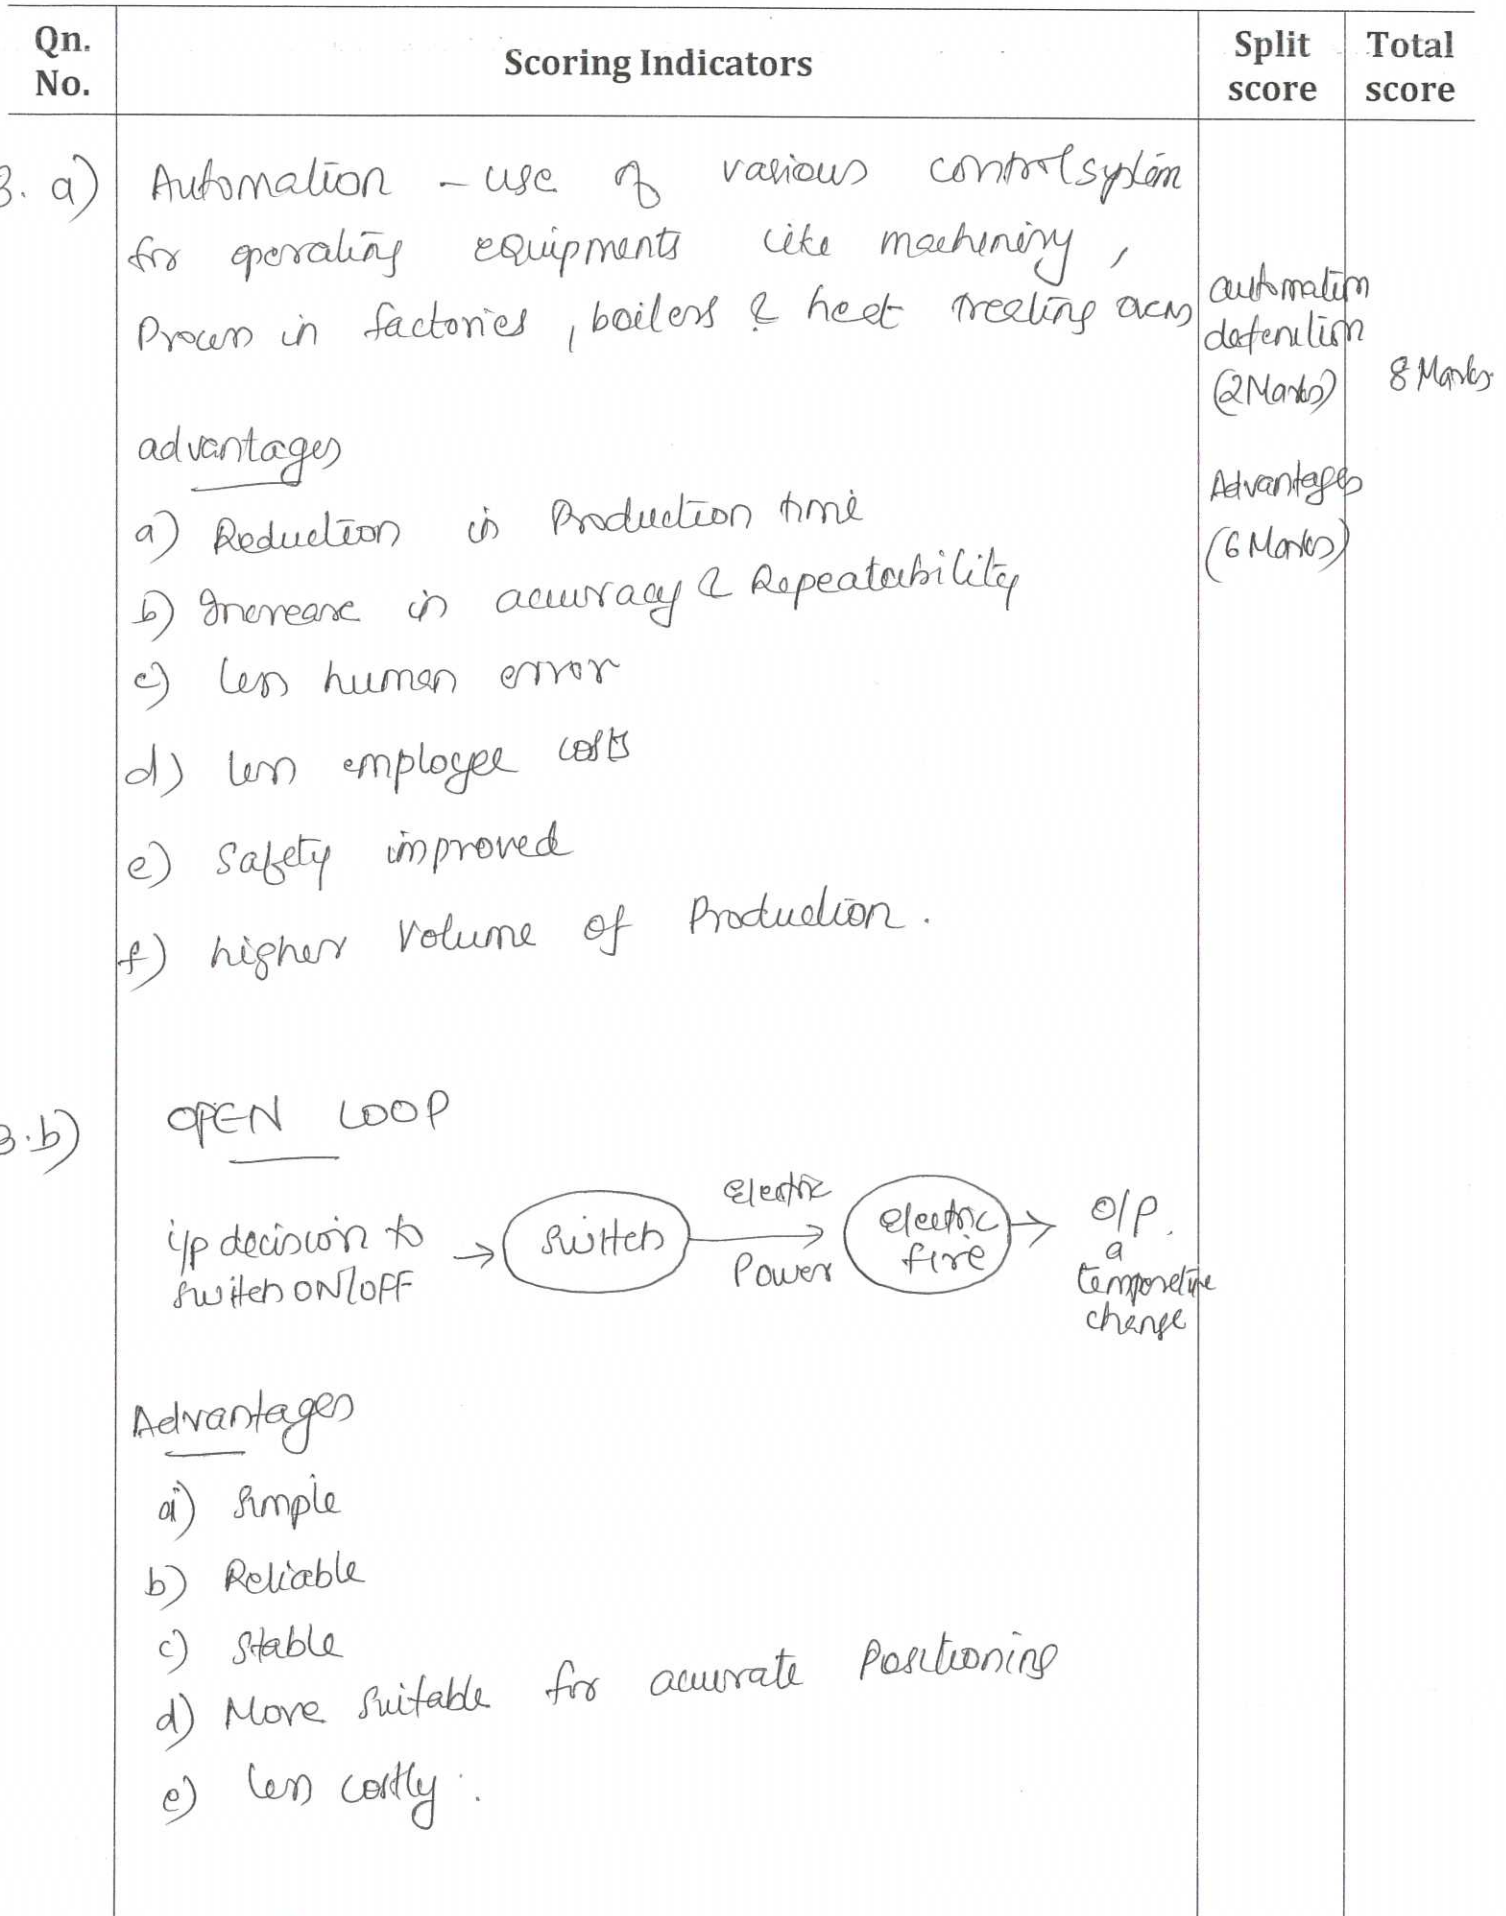 Qn. No.
Scoring Indicators
Split score
Total score
3. a) Automation - use of various control system
for operating equipments like machinery,
Process in factories, boilers & heat treating
automation
defenition
(2 Marks)
8 Marks
advantages
Advantages
(6 Marks)
a) Reduction in Production time
b) Increase in accuracy & Repeatability
c) less human error
d) less employee costs
e) Safety improved
f) higher Volume of Production.
3.b) OPEN LOOP
i/p decision to
switch ON/OFF
Switch
Electric
Power
electric
fire
O/P.
a
temperature
change
Advantages
a) Simple
b) Reliable
c) Stable
d) More Suitable for accurate Positioning
e) less costly.